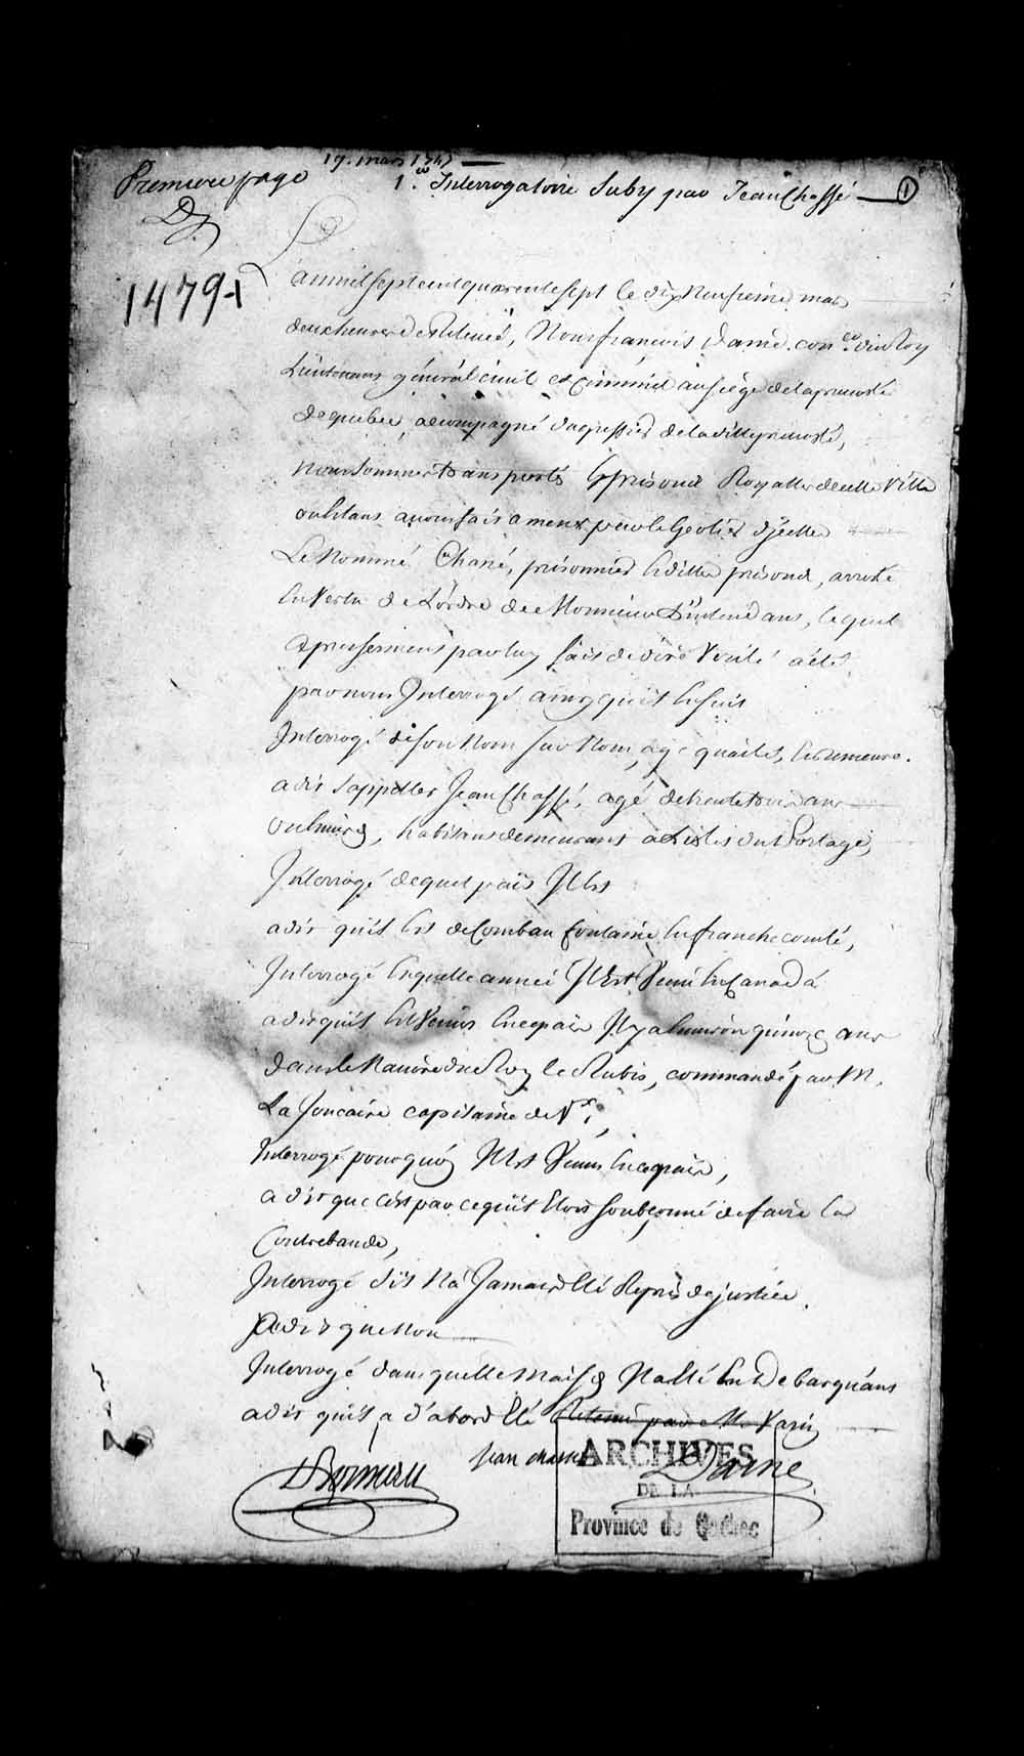 19. mars 1747
Premiere page 1.er Interrogatoire Suby par Jean Chassé 1
D
1479-1
L'an mil sept cent quarente sept le dix neufieme mars
deux heures de Relevée, Nous françois Daine con.er du Roy
Lieutenant général civil et criminel au siége de la prevosté
de quebec, acompagné du greffier de laditte prevosté,
nous sommes transportés Es prisons Royalles de cette Ville
ou Estans avons fait amener par le Geolier d'jcelles
Le Nommé Chassé, prisonnier Esdittes prisons, arresté
En Vertu de L'ordre de Monsieur L'intendant, lequel
apres serment par luy fait de dire Verité a été
par nous Interrogé ainsy qu'il Ensuit
Interrogé de son Nom sur Nom, age qualité, Et demeure.
a dit s'appeller Jean Chassé, agé de trente trois ans
ou Environ, habitant demeurant a L'islet du Portage,
Interrogé de quel païs Il Est
a dit qu'il Est de Combau fontaine En franche comté,
Interrogé En quelle année Il Est Venu En Canada
a dit qu'il Est Venu En ce païs Il y a Environ quinze ans
dans le Navire du Roy le Rubis, commandé par M.
La Joncaire capitaine de V.x,
Interrogé pourquoy Il Est Venu En ce païs,
a dit que c'est par ce qu'il Etoit soubconné de faire la
Contrebande,
Interrogé s'il N'a Jamais Eté Repris de justice.
a dit que Non
Interrogé dans quelle maison Il a Eté En Debarquant
a dit qu'il a d'abord Eté Retenu par M. Varin
Boisseau Jean chassé Daine
ARCHIVES
DE LA
Province de Québec